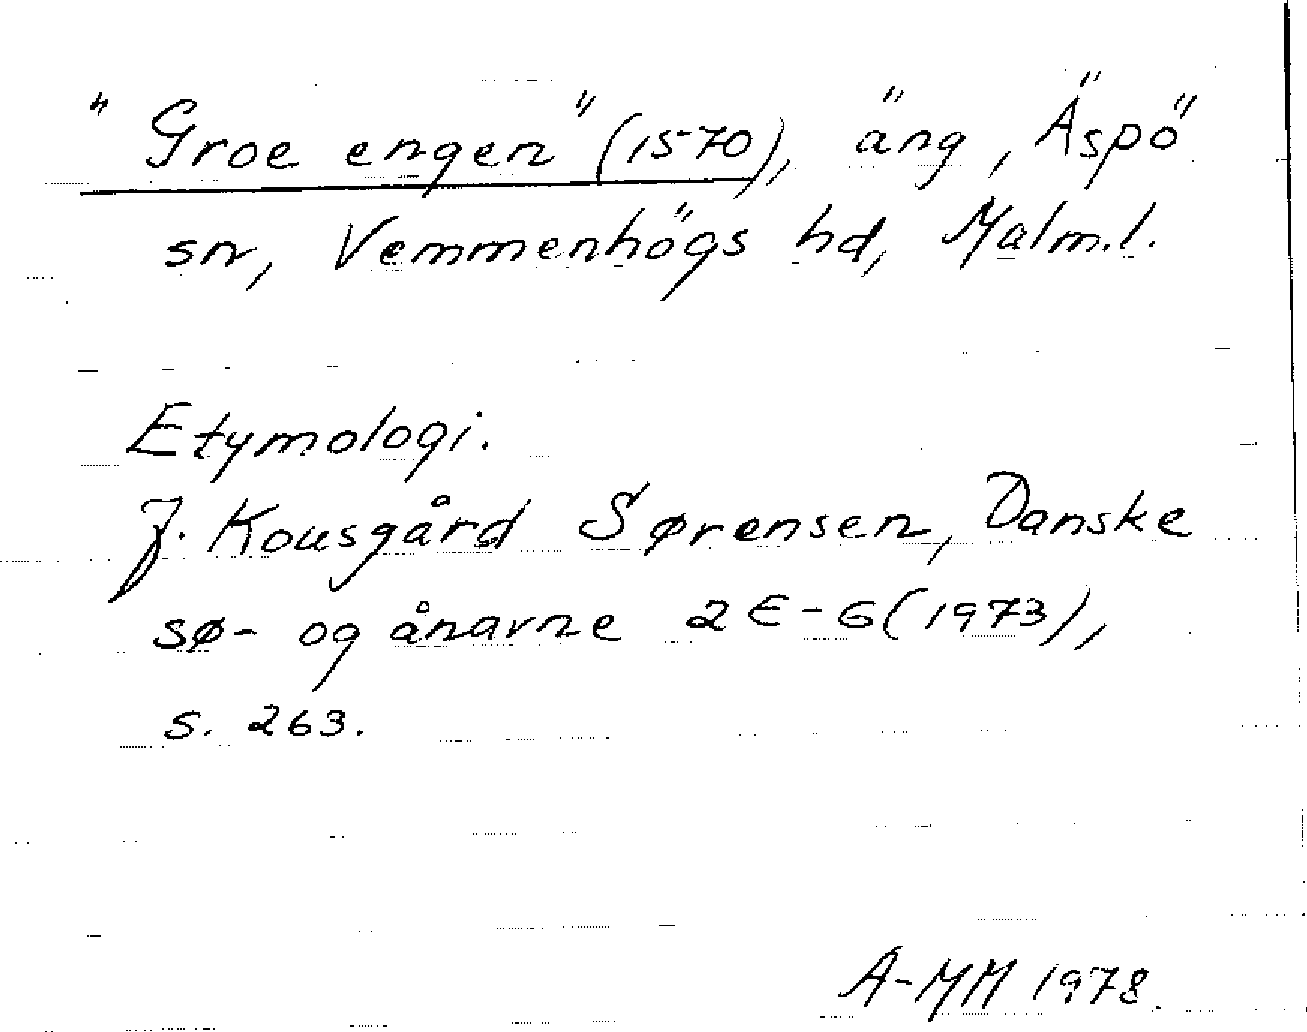 "Groe engen" (1570), äng, Äspö
sn, Vemmenhögs hd, Malm.l.
Etymologi.
J. Kousgård Sørensen, Danske
sø- og ånavne 2 E-G (1973),
s. 263.
A-MM 1978.